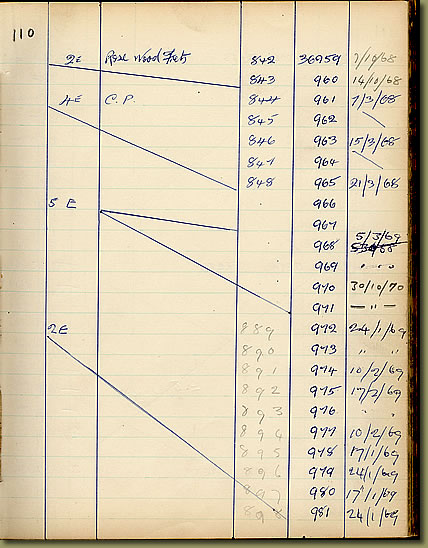 110
2E Rose Wood Frets 842 36959 7/10/68
843 960 14/10/68
4E C.P. 844 961 7/3/68
845 962
846 963 15/3/68
847 964
848 965 21/3/68
5 E 966
967
968 5/3/69
969 " " "
970 30/10/70
971 — " —
2E 889 972 24/1/69
890 973 " "
891 974 10/2/69
892 975 17/2/69
893 976 " "
894 977 10/2/69
895 978 17/1/69
896 979 24/1/69
897 980 17/1/69
898 981 24/1/69